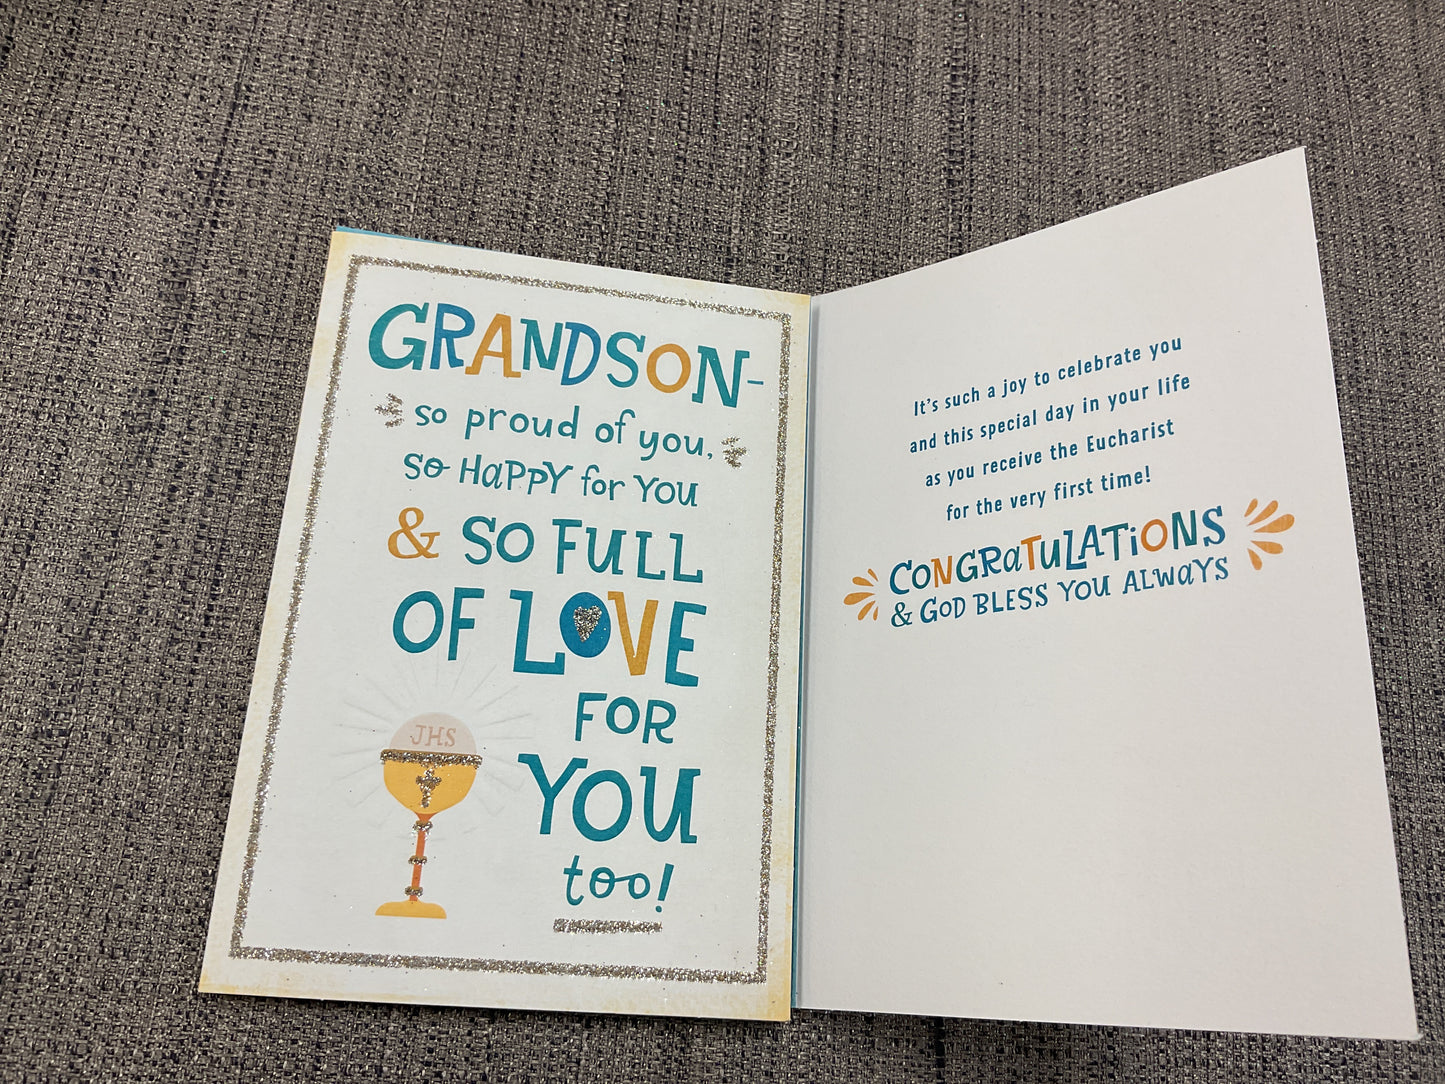 GRANDSON-
so proud of you,
so HaPPY for YOU
& SO FULL
OF LOVE
FOR
YOU
too!
JHS
It's such a joy to celebrate you
and this special day in your life
as you receive the Eucharist
for the very first time!
CONGRaTULATiONS
& GOD BLESS YOU ALWaYS